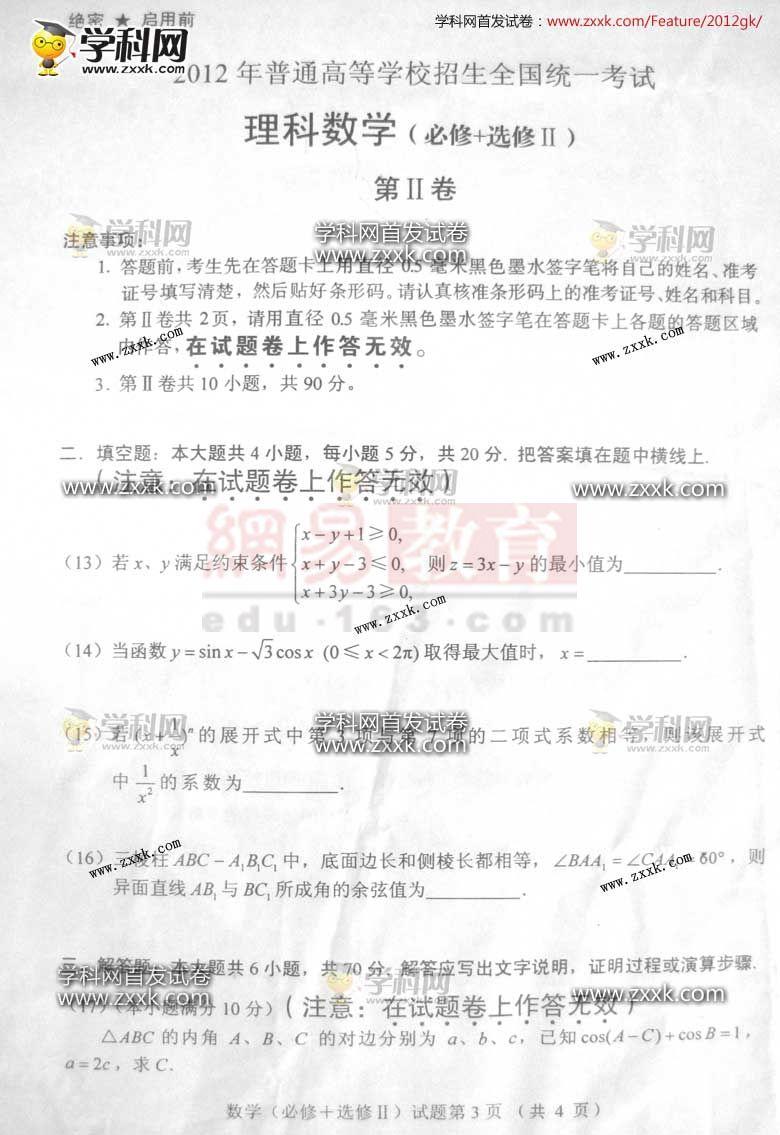 绝密 ★ 启用前
学科网首发试卷:www.zxxk.com/Feature/2012gk/
学科网
www.zxxk.com
2012 年普通高等学校招生全国统一考试
理科数学 ( 必修+选修 II )
第 II 卷
学科网
www.zxxk.com
学科网首发试卷
www.zxxk.com
学科网
www.zxxk.com
注意事项:
1. 答题前,考生先在答题卡上用直径 0.5 毫米黑色墨水签字笔将自己的姓名、准考
证号填写清楚,然后贴好条形码。请认真核准条形码上的准考证号、姓名和科目。
2. 第 II 卷共 2 页,请用直径 0.5 毫米黑色墨水签字笔在答题卡上各题的答题区域
内作答,在试题卷上作答无效。
www.zxxk.com
www.zxxk.com
3. 第 II 卷共 10 小题,共 90 分。
二. 填空题:本大题共 4 小题,每小题 5 分,共 20 分. 把答案填在题中横线上.
(注意:在试题卷上作答无效)
学科网首发试卷
www.zxxk.com
学科网
www.zxxk.com
学科网首发试卷
www.zxxk.com
網易教育
edu.163.com
(13) 若 x、y 满足约束条件 { x − y + 1 ≥ 0, x + y − 3 ≤ 0, x + 3y − 3 ≥ 0, 则 z = 3x − y 的最小值为________.
www.zxxk.com
(14) 当函数 y = sin x − √3 cos x (0 ≤ x < 2π) 取得最大值时,x = ________.
学科网
www.zxxk.com
学科网首发试卷
www.zxxk.com
学科网
www.zxxk.com
(15) 若 (x + 1/x)ⁿ 的展开式中第 3 项与第 7 项的二项式系数相等,则该展开式
中 1/x² 的系数为________.
(16) 三棱柱 ABC − A₁B₁C₁ 中,底面边长和侧棱长都相等,∠BAA₁ = ∠CAA₁ = 60°,则
www.zxxk.com
www.zxxk.com
异面直线 AB₁ 与 BC₁ 所成角的余弦值为________.
三. 解答题:本大题共 6 小题,共 70 分. 解答应写出文字说明,证明过程或演算步骤.
学科网首发试卷
www.zxxk.com
学科网
www.zxxk.com
学科网首发试卷
www.zxxk.com
(17) (本小题满分 10 分) (注意:在试题卷上作答无效)
△ABC 的内角 A、B、C 的对边分别为 a、b、c,已知 cos(A − C) + cos B = 1,
a = 2c,求 C.
数学(必修+选修II)试题第 3 页 (共 4 页)